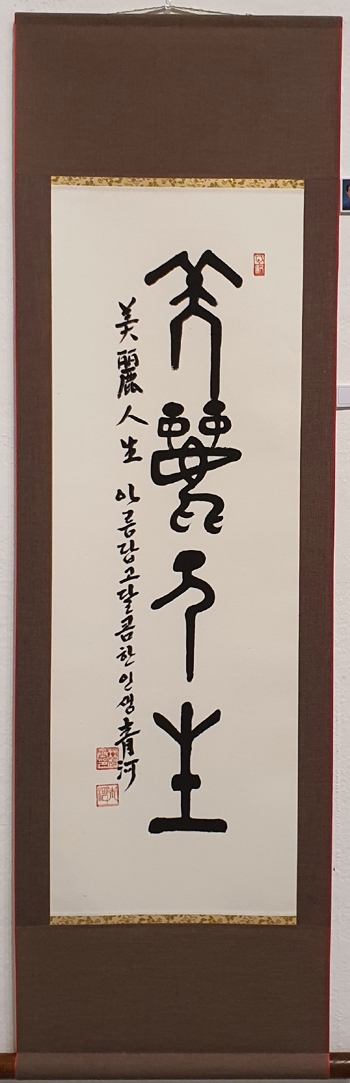 美麗人生
美麗人生 아름답고 달콤한 인생 青河